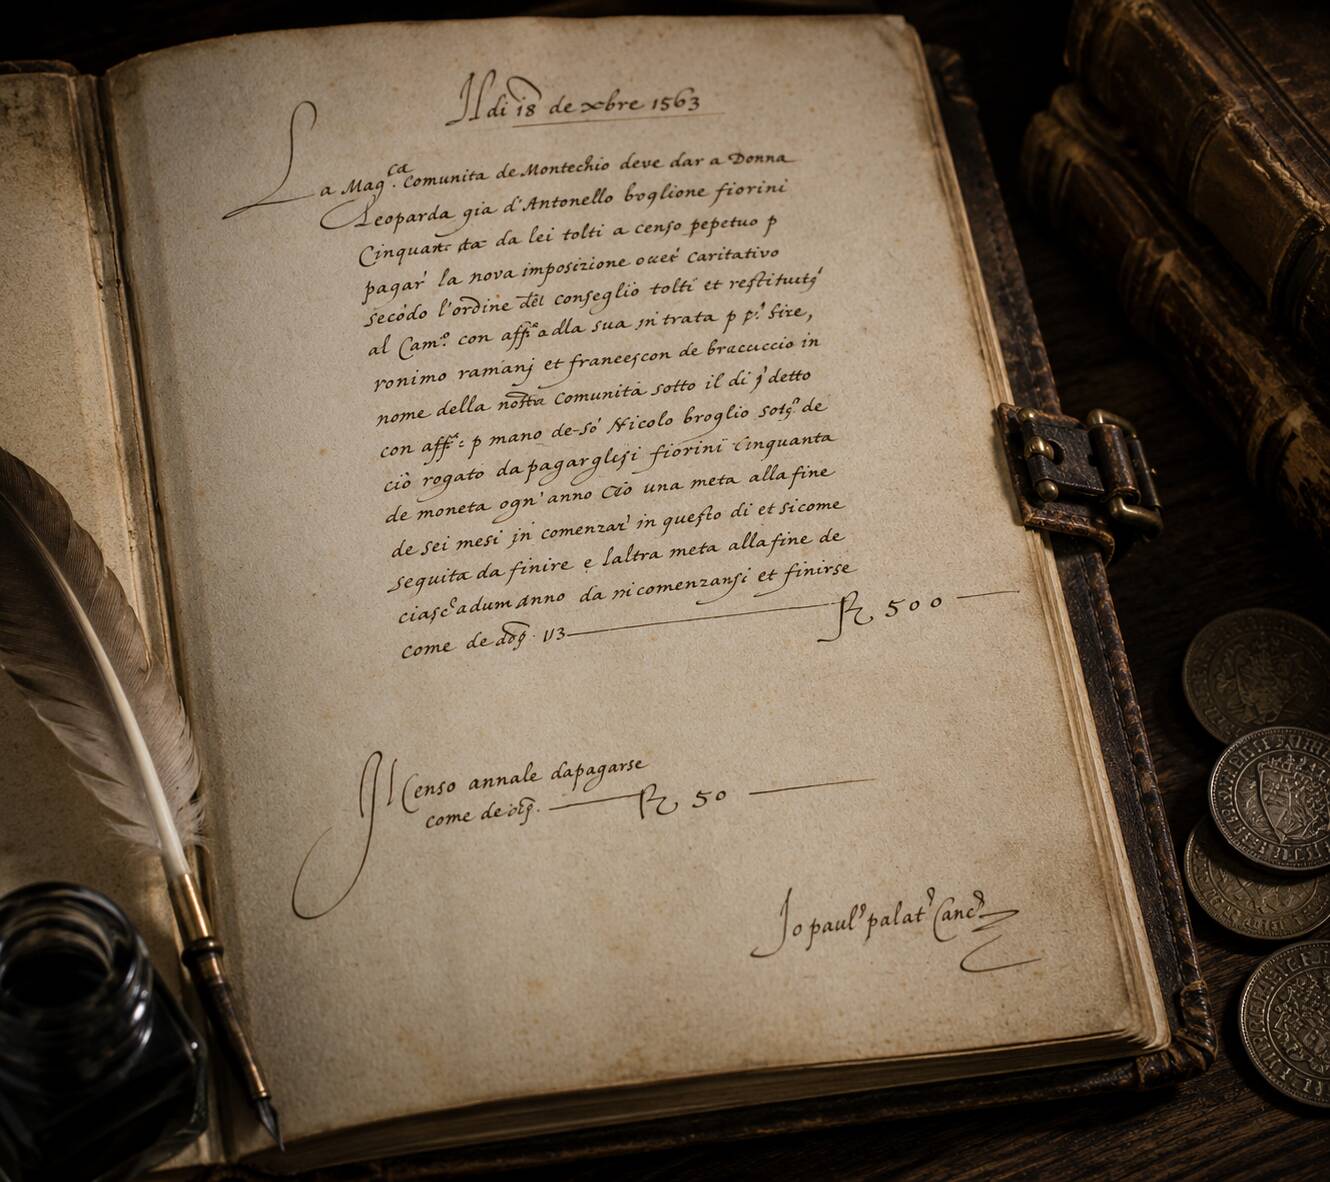 Il di 18 de xbre 1563
La Mag.ca Comunita de Montechio deve dar a Donna
Leoparda gia d'Antonello broglione fiorini
Cinquan: ta: da lei tolti a censo pepetuo p
pagar' la nova imposizione over' Caritativo
secódo l'ordine del conseglio tolti et restituitj
al Cam.o con aff.e adla sua intrata p p.o
ronimo ramanj et francescon de bracuccio in
nome della nostra Comunità sotto il di j detto
con aff.e: p mano de Nicolo broglio de
ciò rogato da pagarglisi fiorini Cinquanta
de moneta ogn' anno Cio una meta alla fine
de sei mesi jn comenzar' in questo di et sicome
sequita da finire e laltra meta alla fine de
ciasc'adum Anno da ni comenzansi et finirse
come de V3 500
Il Censo annale dapagarse
come de 50
Jo paul' palat' Canc'